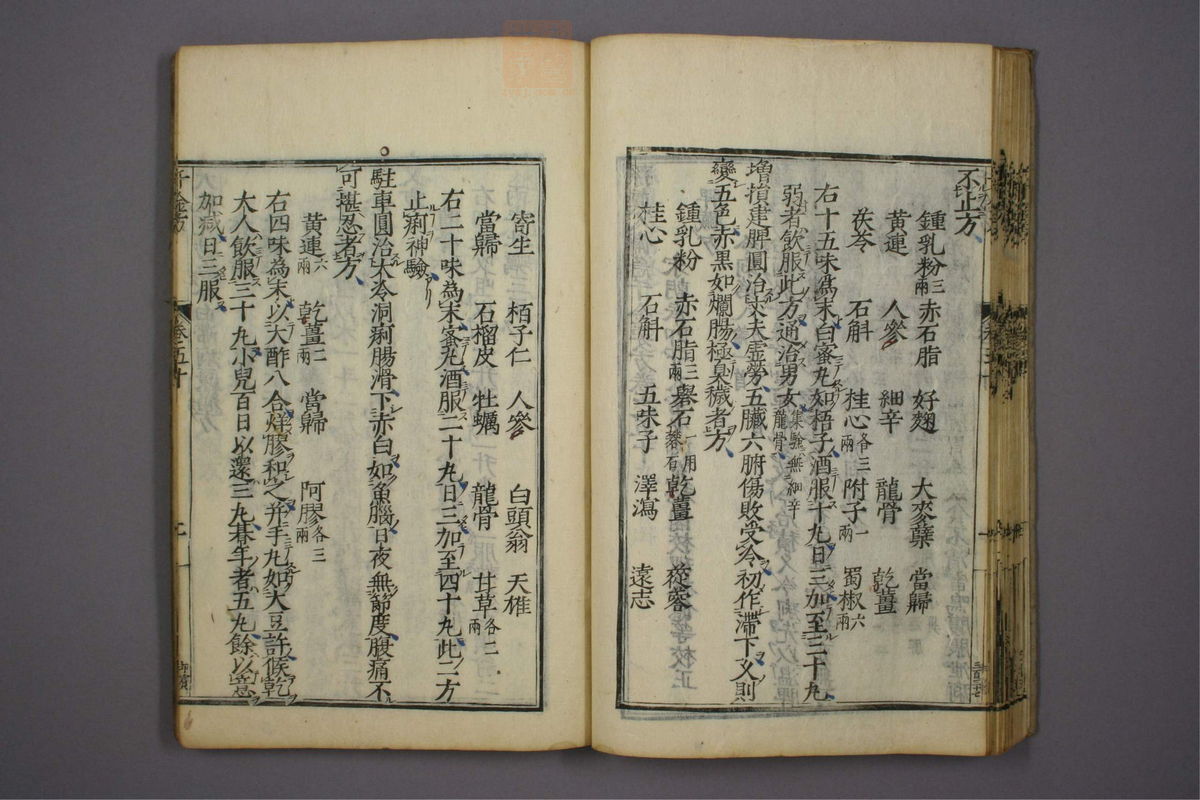 不止方
鍾乳粉三兩 赤石脂 好麴 大麥蘖 當歸
黄連 人參 細辛 龍骨 乾薑
茯苓 石斛 桂心各三兩 附子一兩 蜀椒六兩
右十五味爲末白蜜丸如梧子酒服十丸日三加至三十丸
弱者飲服此方通治男女集驗無細辛龍骨
増損建脾圓治丈夫虛勞五臟六腑傷敗受冷初作滯下又則
變五色赤黒如爛腸極臭穢者方
鍾乳粉 赤石脂三兩 礜石一用礬石 乾薑 蓯蓉
桂心 石斛 五味子 澤瀉 遠志
寄生 栢子仁 人參 白頭翁 天椎
當歸 石榴皮 牡蠣 龍骨 甘草各二兩
右二十味為末蜜丸酒服二十丸日三加至四十丸此二方
止痢神驗
駐車圓治大冷洞痢腸滑下赤白如魚腦日夜無節度腹痛不
可堪忍者方
黄連六兩 乾薑二兩 當歸 阿膠各三兩
右四味為末以大酢八合烊膠和之并手丸如大豆許候乾
大人飲服三十丸小兒百日以還三丸朞年者五丸餘以意
加減日三服
千金方
卷五十